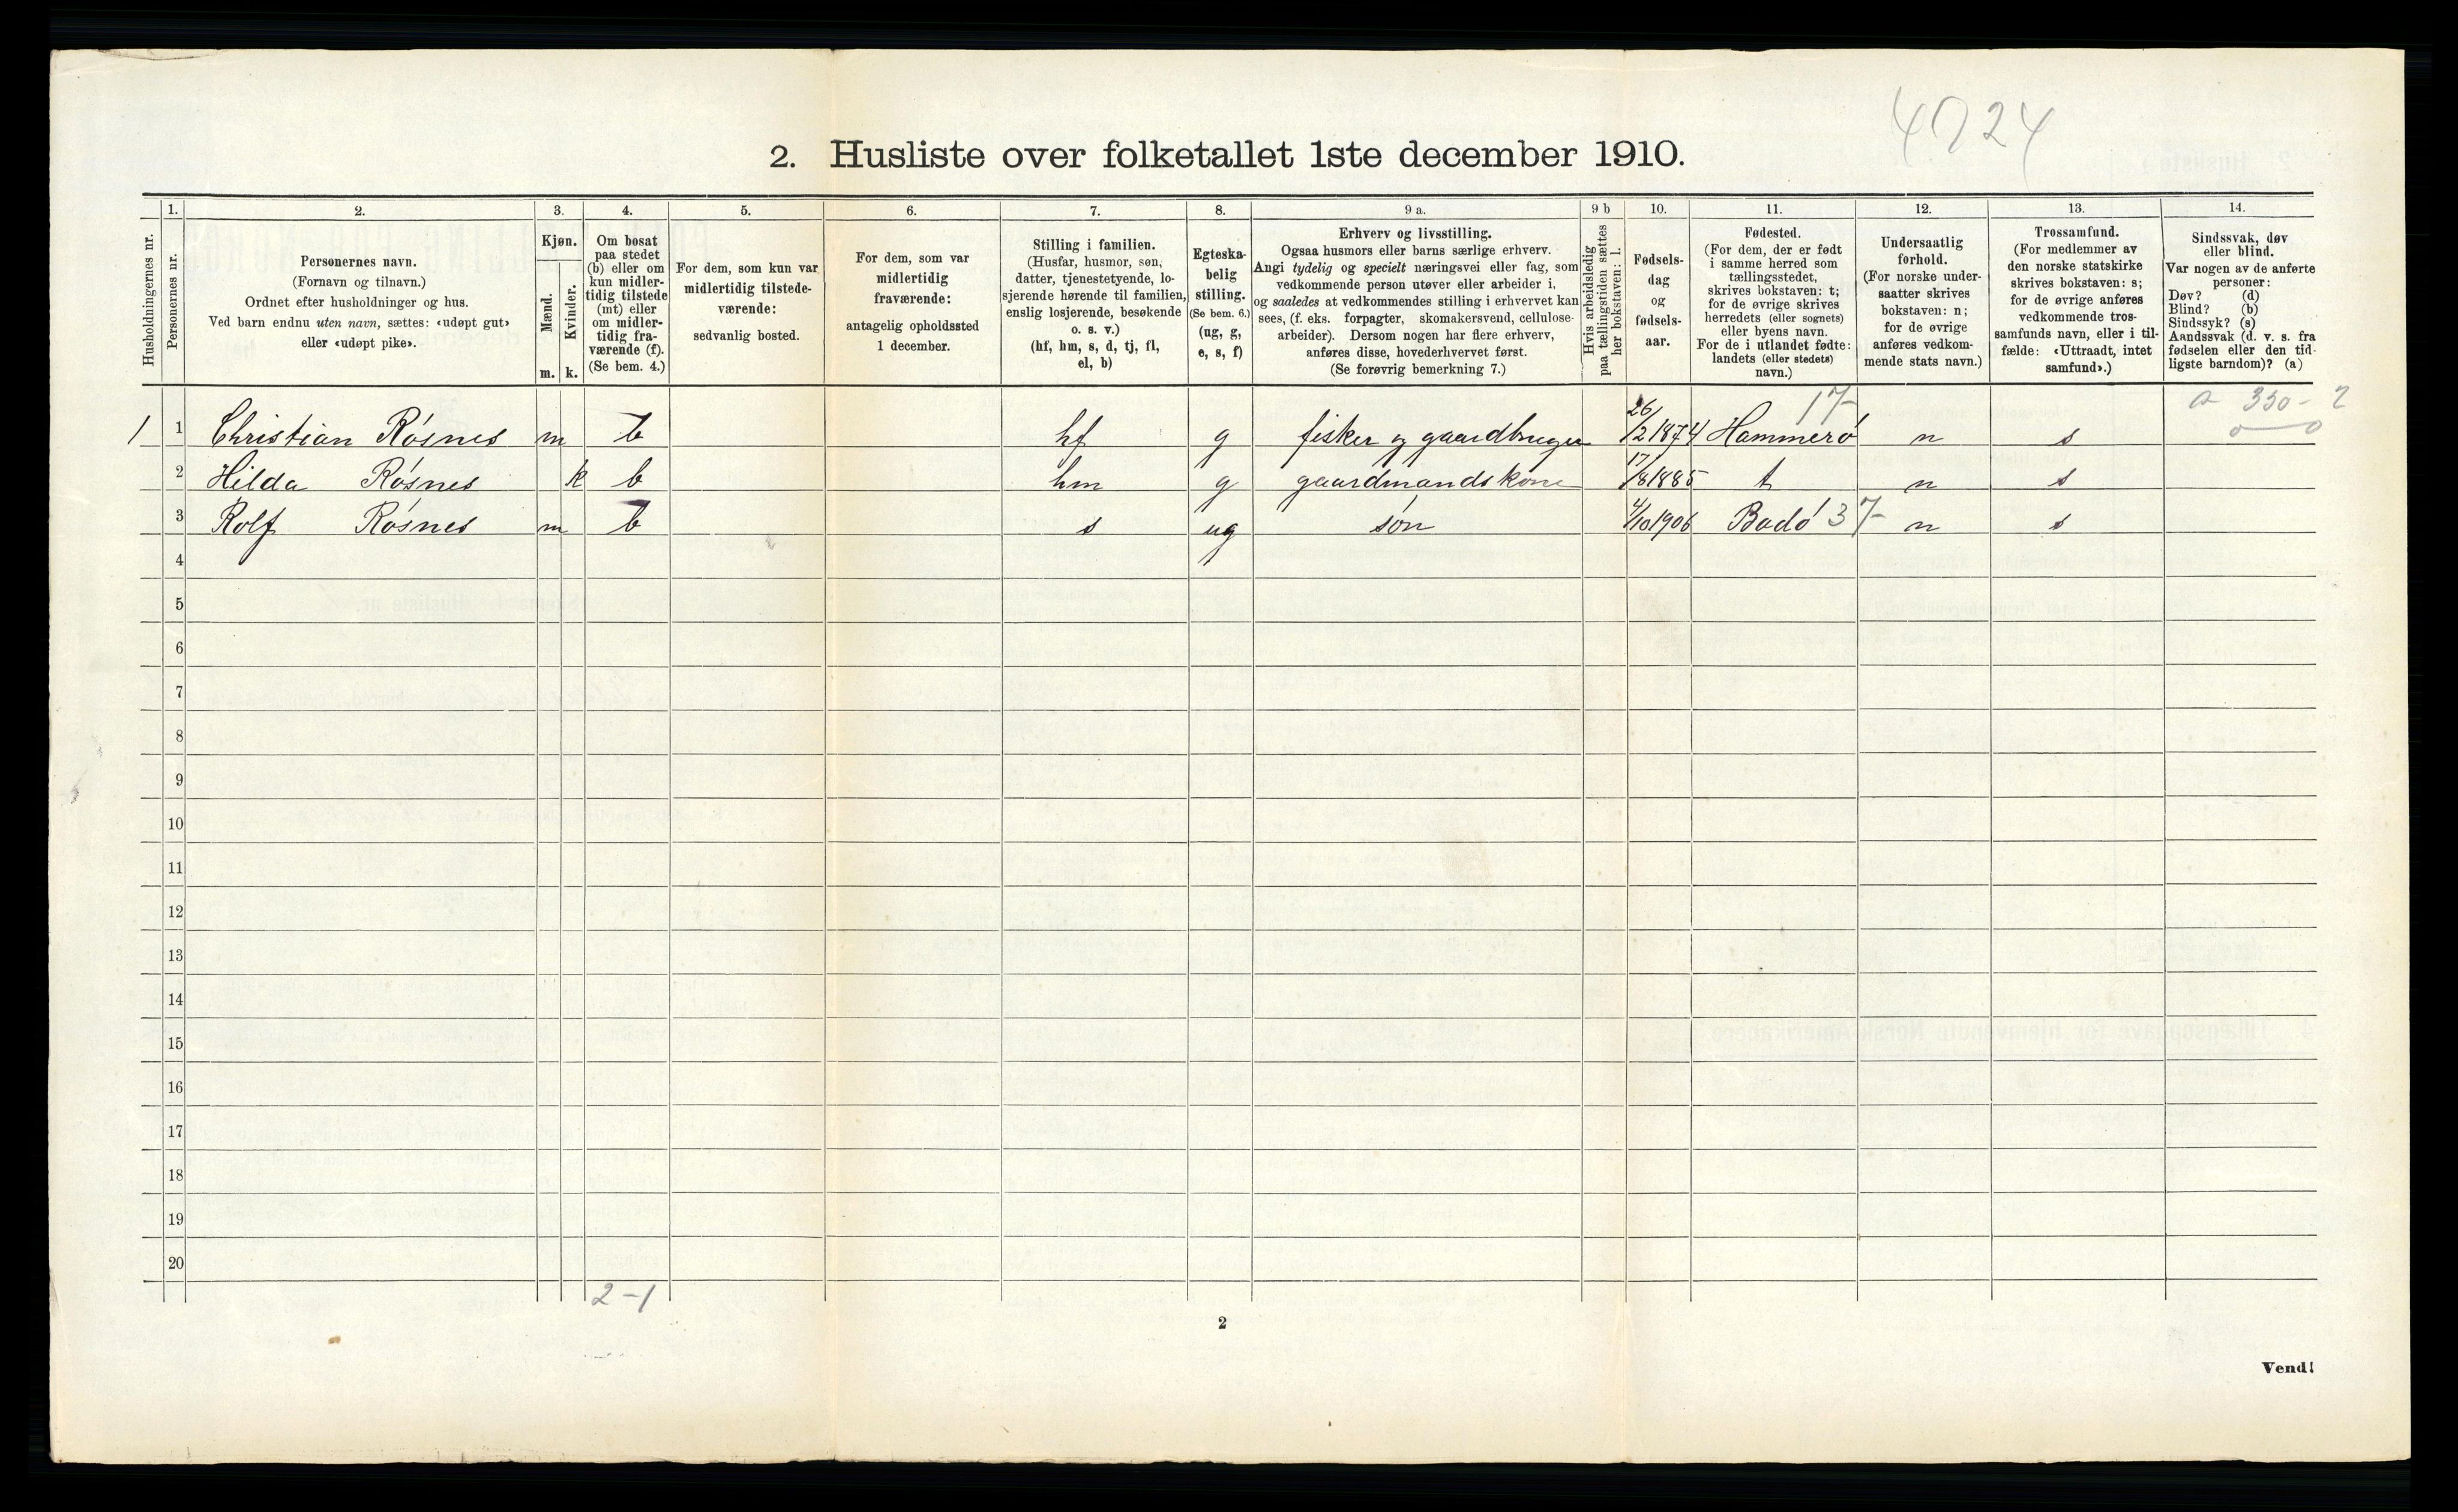 4024
2. Husliste over folketallet 1ste december 1910.
Husholdningernes nr.
1.
Personernes nr.
2.
Personernes navn.
(Fornavn og tilnavn.)
Ordnet efter husholdninger og hus.
Ved barn endnu uten navn, sættes: «udøpt gut»
eller «udøpt pike».
3.
Kjøn.
Mænd.
Kvinder.
m. k.
4.
Om bosat
paa stedet
(b) eller om
kun midler-
tidig tilstede
(mt) eller
om midler-
tidig fra-
værende (f).
(Se bem. 4.)
5.
For dem, som kun var
midlertidig tilstede-
værende:
sedvanlig bosted.
6.
For dem, som var
midlertidig
fraværende:
antagelig opholdssted
1 december.
7.
Stilling i familien.
(Husfar, husmor, søn,
datter, tjenestetyende, lo-
sjerende hørende til familien,
enslig losjerende, besøkende
o. s. v.)
(hf, hm, s, d, tj, fl,
el, b)
8.
Egteska-
belig
stilling.
(Se bem. 6.)
(ug, g,
e, s, f)
9 a.
Erhverv og livsstilling.
Ogsaa husmors eller barns særlige erhverv.
Angi tydelig og specielt næringsvei eller fag, som
vedkommende person utøver eller arbeider i,
og saaledes at vedkommendes stilling i erhvervet kan
sees, (f. eks. forpagter, skomakersvend, cellulose-
arbeider). Dersom nogen har flere erhverv,
anføres disse, hovederhvervet først.
(Se forøvrig bemerkning 7.)
9 b
Hvis arbeidsledig
paa tællingstiden sættes
her bokstaven: l.
10.
Fødsels-
dag
og
fødsels-
aar.
11.
Fødested.
(For dem, der er født
i samme herred som
tællingsstedet,
skrives bokstaven: t;
for de øvrige skrives
herredets (eller sognets)
eller byens navn.
For de i utlandet fødte:
landets (eller stedets)
navn.)
12.
Undersaatlig
forhold.
(For norske under-
saatter skrives
bokstaven: n;
for de øvrige
anføres vedkom-
mende stats navn.)
13.
Trossamfund.
(For medlemmer av
den norske statskirke
skrives bokstaven: s;
for de øvrige anføres
vedkommende tros-
samfunds navn, eller i til-
fælde: «Uttraadt, intet
samfund».)
14.
Sindssvak, døv
eller blind.
Var nogen av de anførte
personer:
Døv? (d)
Blind? (b)
Sindssyk? (s)
Aandssvak (d. v. s. fra
fødselen eller den tid-
ligste barndom)? (a)
17-
a 330 - 2
0 — 0
1 1 Christian Røsnes m b hf g fisker og gaardbruger 26/2 1874 Hammerø n s
2 Hilda Røsnes k b hm g gaardmandskone 17/8 1885 t n s
3 Rolf Røsnes m b s ug søn 4/10 1906 Bodø 37- n s
4
5
6
7
8
9
10
11
12
13
14
15
16
17
18
19
20
2-1
2
Vend!